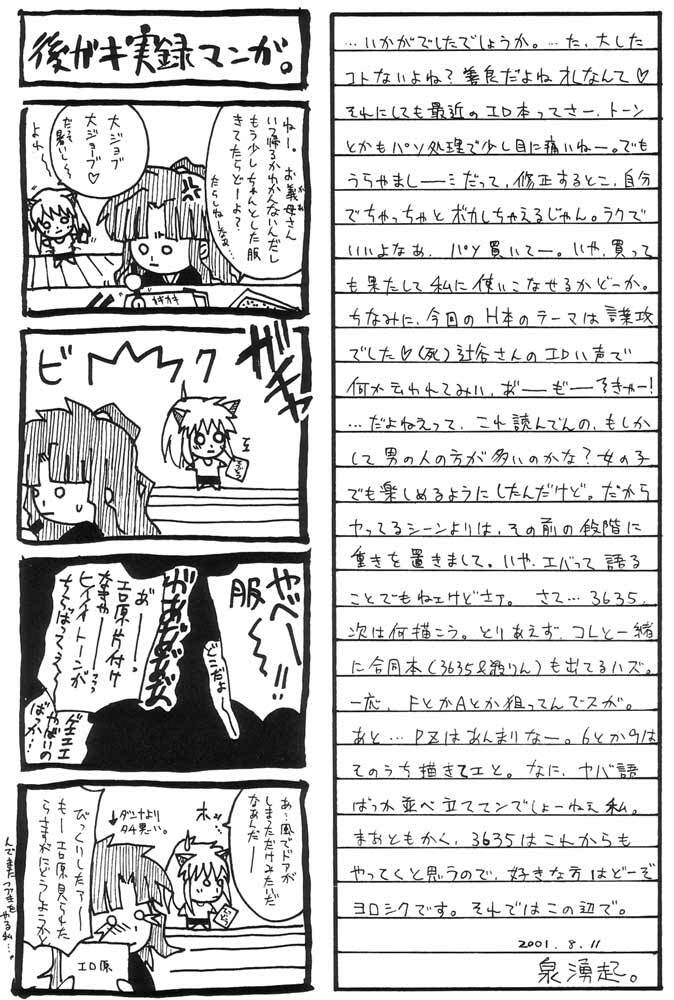 後ガキ実録マンガ。
ねー。お義母さん
いつ帰るかわかんないんだし
もう少しちゃんとした服
きてたらどーよ?
だらしねぇなぁ…
大ジョブ
大ジョーブ♡
だって暑いしぃ
よれ〜
ガチャ
ビークク
やべー!!
服ー
どこだよ
があああ
あーっ
エロ原片付け
なきゃーっっ
ヒィィィトーンが
ちらばってぇ〜
ゲェエエ
やばいの
ばっか…
あ〜風でドアが
しまっただけみたいだ
なぁんだー
ホッ
↓ダンナより
タチ悪〜い。
びっくりしたァー
もーエロ原見られた
らさすがにどうしようかと
エロ原
んでまたつづきを
やる私…。
…いかがでしたでしょうか。…た、大した
コトないよね?善良だよねオレなんて♡
それにしても最近のエロ本ってさー、トーン
とかもパソ処理で少し目に痛いねー。でも
うらやましーーミだって、修正するとこ、自分
でちゃっちゃとボカしちゃえるじゃん。ラクで
いいよなぁ、パソ買いてー。いや、買って
も果たして私に使いこなせるかどーか。
ちなみに、今回のH本のテーマは言葉攻
でした♡(死)辻谷さんのエロい声で
何か云われてみい、おーーもーーるきゃー!
…だよねえって、これ読んでんの、もしか
して男の人の方が多いのかな?女の子
でも楽しめるようにしたんだけど。だから
ヤってるシーンよりは、その前の段階に
重きを置きまして。いや、エバって語る
ことでもねェけどさァ。さて…3635、
次は何描こう。とりあえず、コレと一緒
に合同本(3635&殺りん)も出てるハズ。
一応、FとかAとか狙ってんでスが。
あと…PZはあんまりなー。6とか9は
そのうち描きてェと。なに、ヤバ語
ばっか並べ立ててンでしょーねぇ私。
まあともかく、3635はこれからも
やってくと思うので、好きな方はどーぞ
ヨロシクです。それではこの辺で。
2001.8.11
泉湧起。